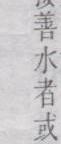 善水者或